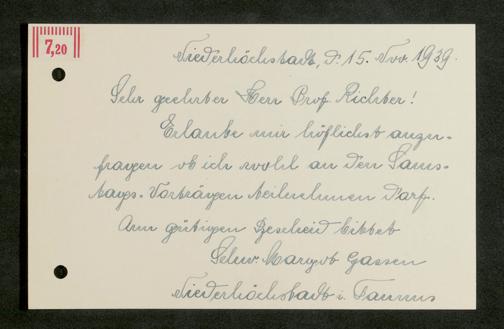 7,20
Niederhöchstadt, d. 15. Nov. 1939.
Sehr geehrter Herr Prof. Richter!
Erlaube mir höflichst anzu-
fragen ob ich wohl an den Sams-
tags-Vorträgen teilnehmen darf.
Um gütigen Bescheid bittet
Schw. Margret Gassen
Niederhöchstadt i. Taunus